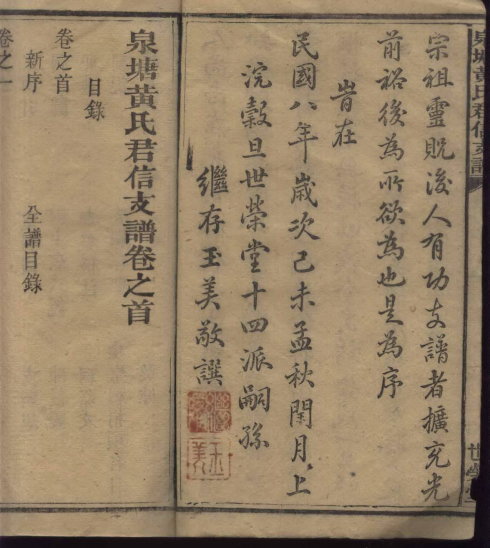 泉塘黃氏君信支譜
世榮
宗祖靈貺後人有功支譜者擴充光
前裕後為所欲為也是為序
旹在
民國八年歲次己未孟秋閏月上
浣穀旦世榮堂十四派嗣孫
繼存玉美敬譔
玉美
泉塘黃氏君信支譜卷之首
目錄
卷之首
新序 全譜目錄
卷之一